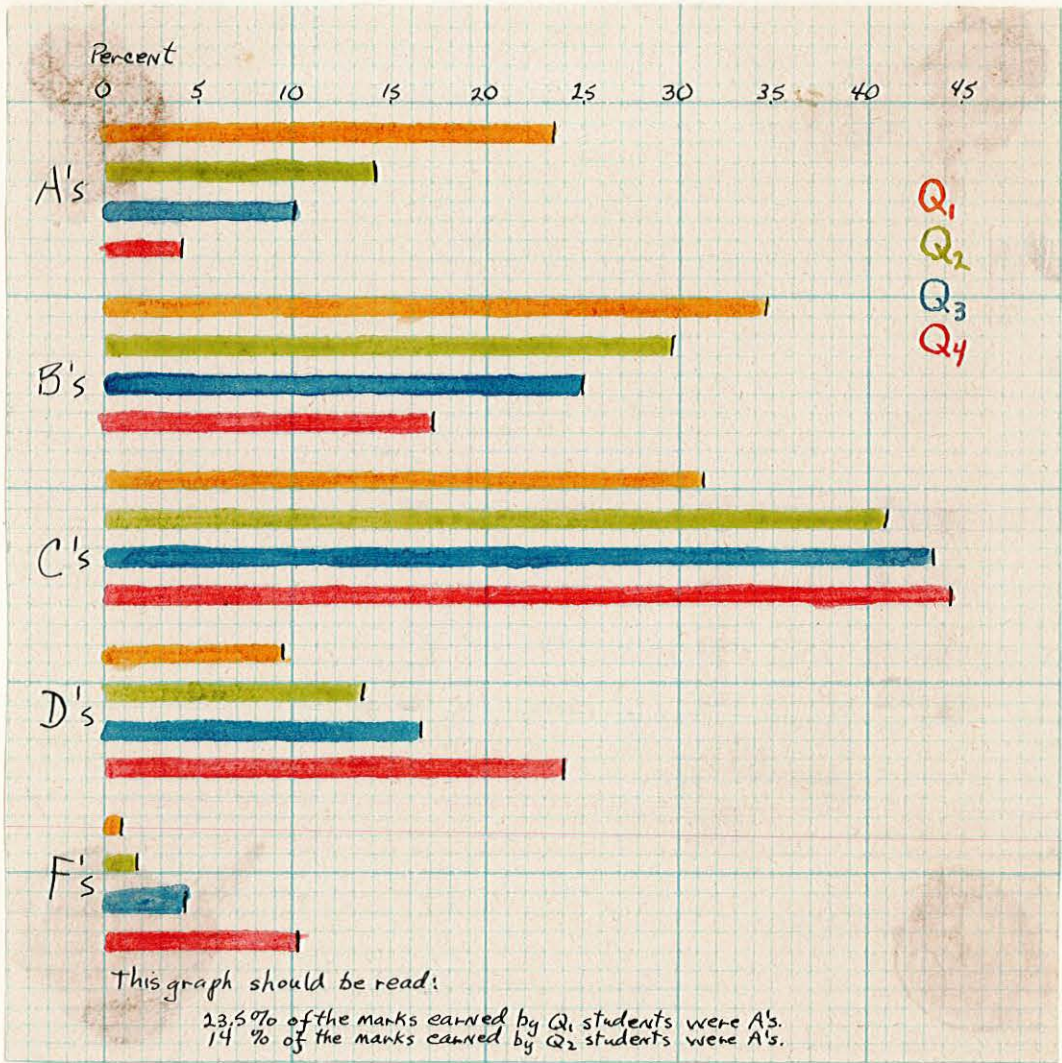 Percent
0 5 10 15 20 25 30 35 40 45
A's
Q1
Q2
Q3
Q4
B's
C's
D's
F's
This graph should be read:
23.5% of the marks earned by Q1 students were A's.
14 % of the marks earned by Q2 students were A's.